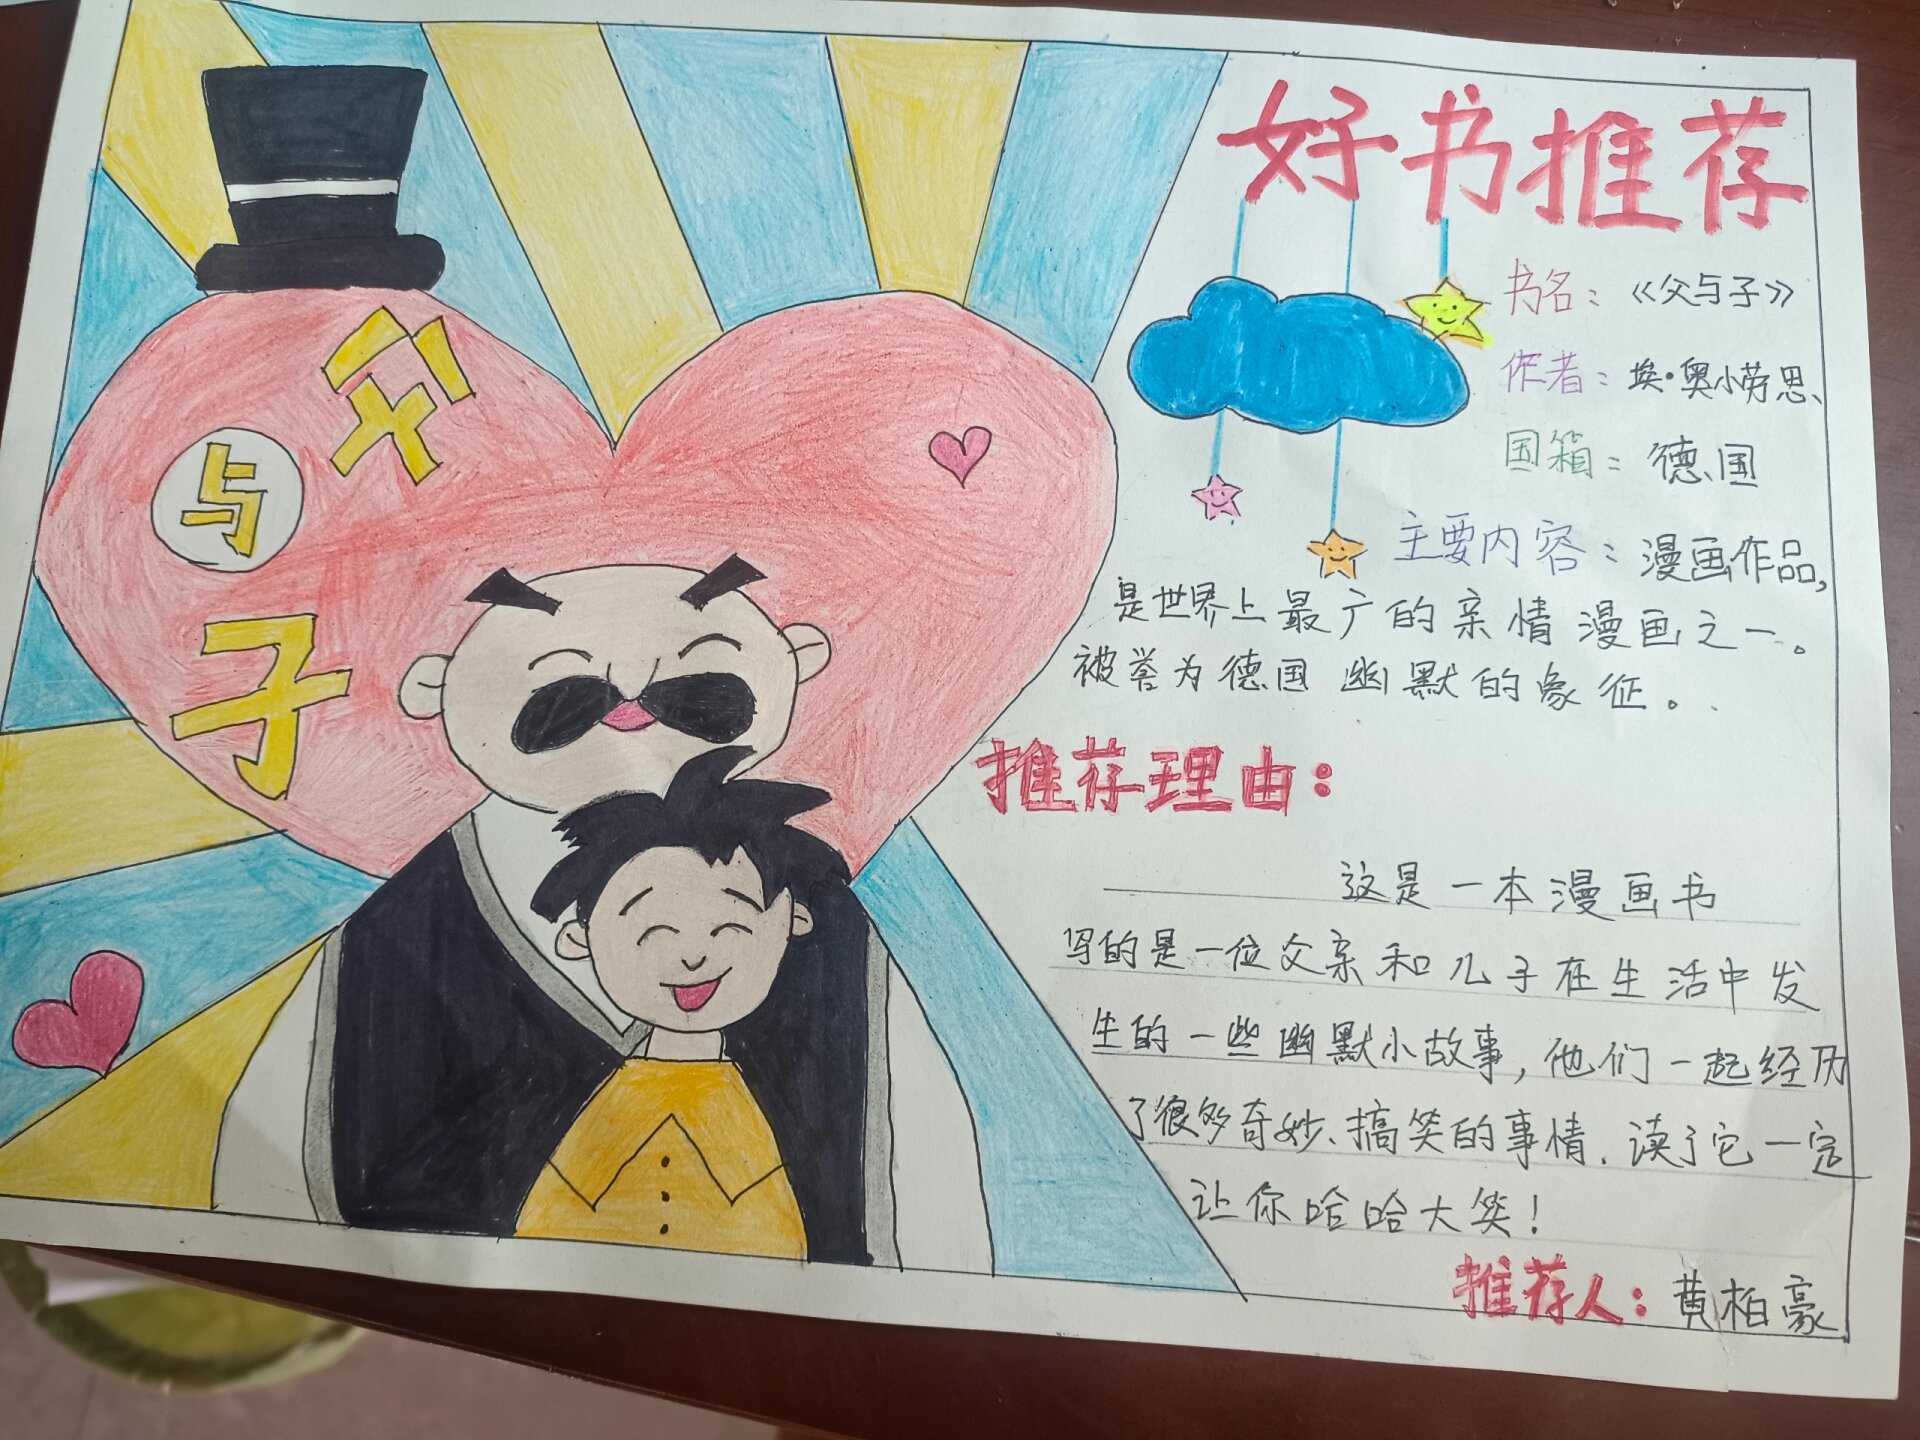 父
与
子
好书推荐
书名：《父与子》
作者：埃·奥小劳思、
国箱：德国
主要内容：漫画作品，
是世界上最广的亲情漫画之一。
被誉为德国幽默的象征。
推荐理由：
这是一本漫画书
写的是一位父亲和儿子在生活中发
生的一些幽默小故事，他们一起经历
了很多奇妙、搞笑的事情．读了它一定
让你哈哈大笑！
推荐人：黄柏豪